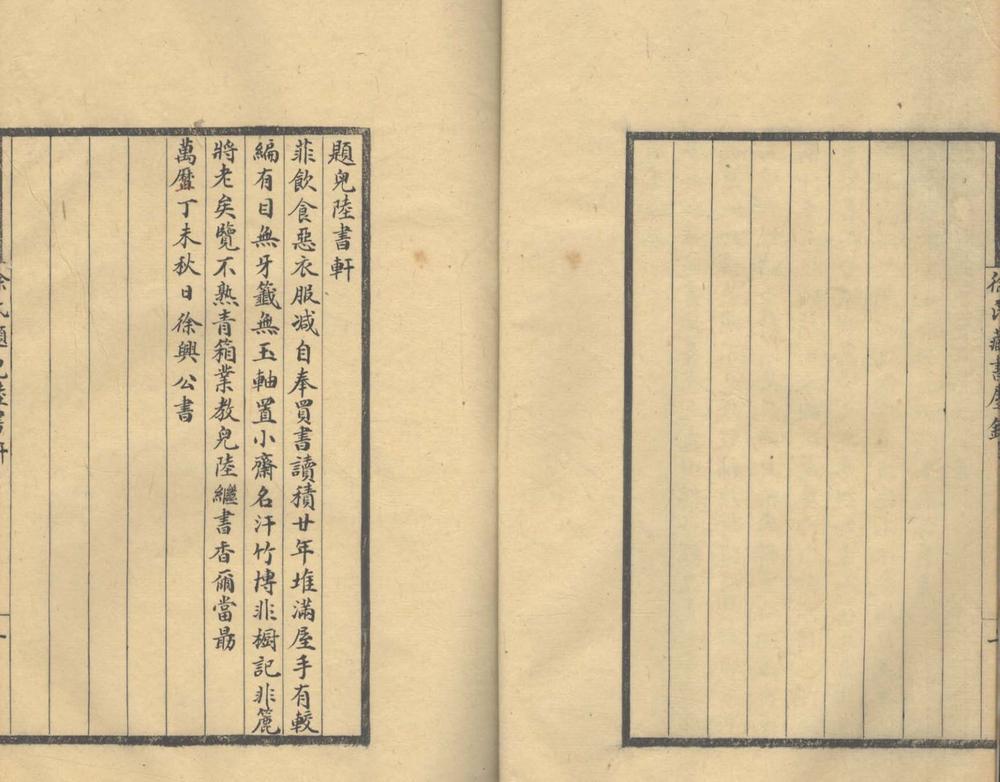 徐氏藏書屋銘
題兒陸書軒
菲飲食惡衣服减自奉買書讀積廿年堆滿屋手有較
編有目無牙籤無玉軸置小齋名汗竹博非櫥記非簏
將老矣覽不熟青箱業教兒陸繼書香爾當勗
萬曆丁未秋日徐興公書
徐氏題兒陸書軒